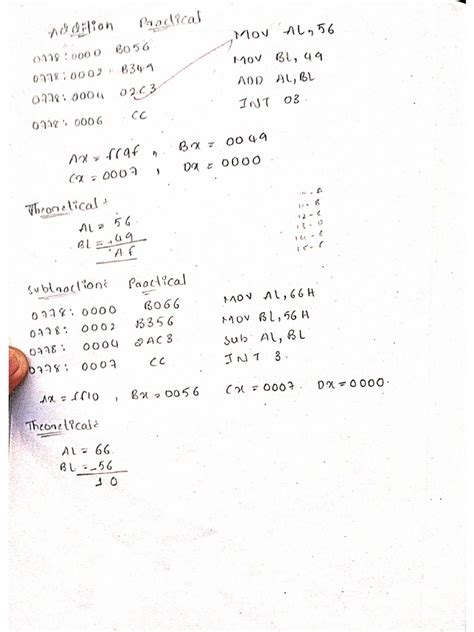 Addition Practical
0778:0000 B056 MOV AL,56
0778:0002 B349 MOV BL, 49
0778:0004 02C3 ADD AL,BL
0778:0006 CC INT 03
Ax = ff9f , Bx = 0049
Cx = 0007 , Dx = 0000
Theoretical:
AL = 56
BL = 49
Af
10 - A
11 - B
12 - C
13 - D
14 - E
15 - F
Subtraction: Practical
0778: 0000 B066 MOV AL,66H
0778: 0002 B356 MOV BL,56H
0778: 0004 2AC3 Sub AL, BL
0778: 0007 CC INT 3.
Ax = ff10 , Bx = 0056 Cx = 0007. Dx = 0000.
Theoretical:
AL = 66
BL = -56
10